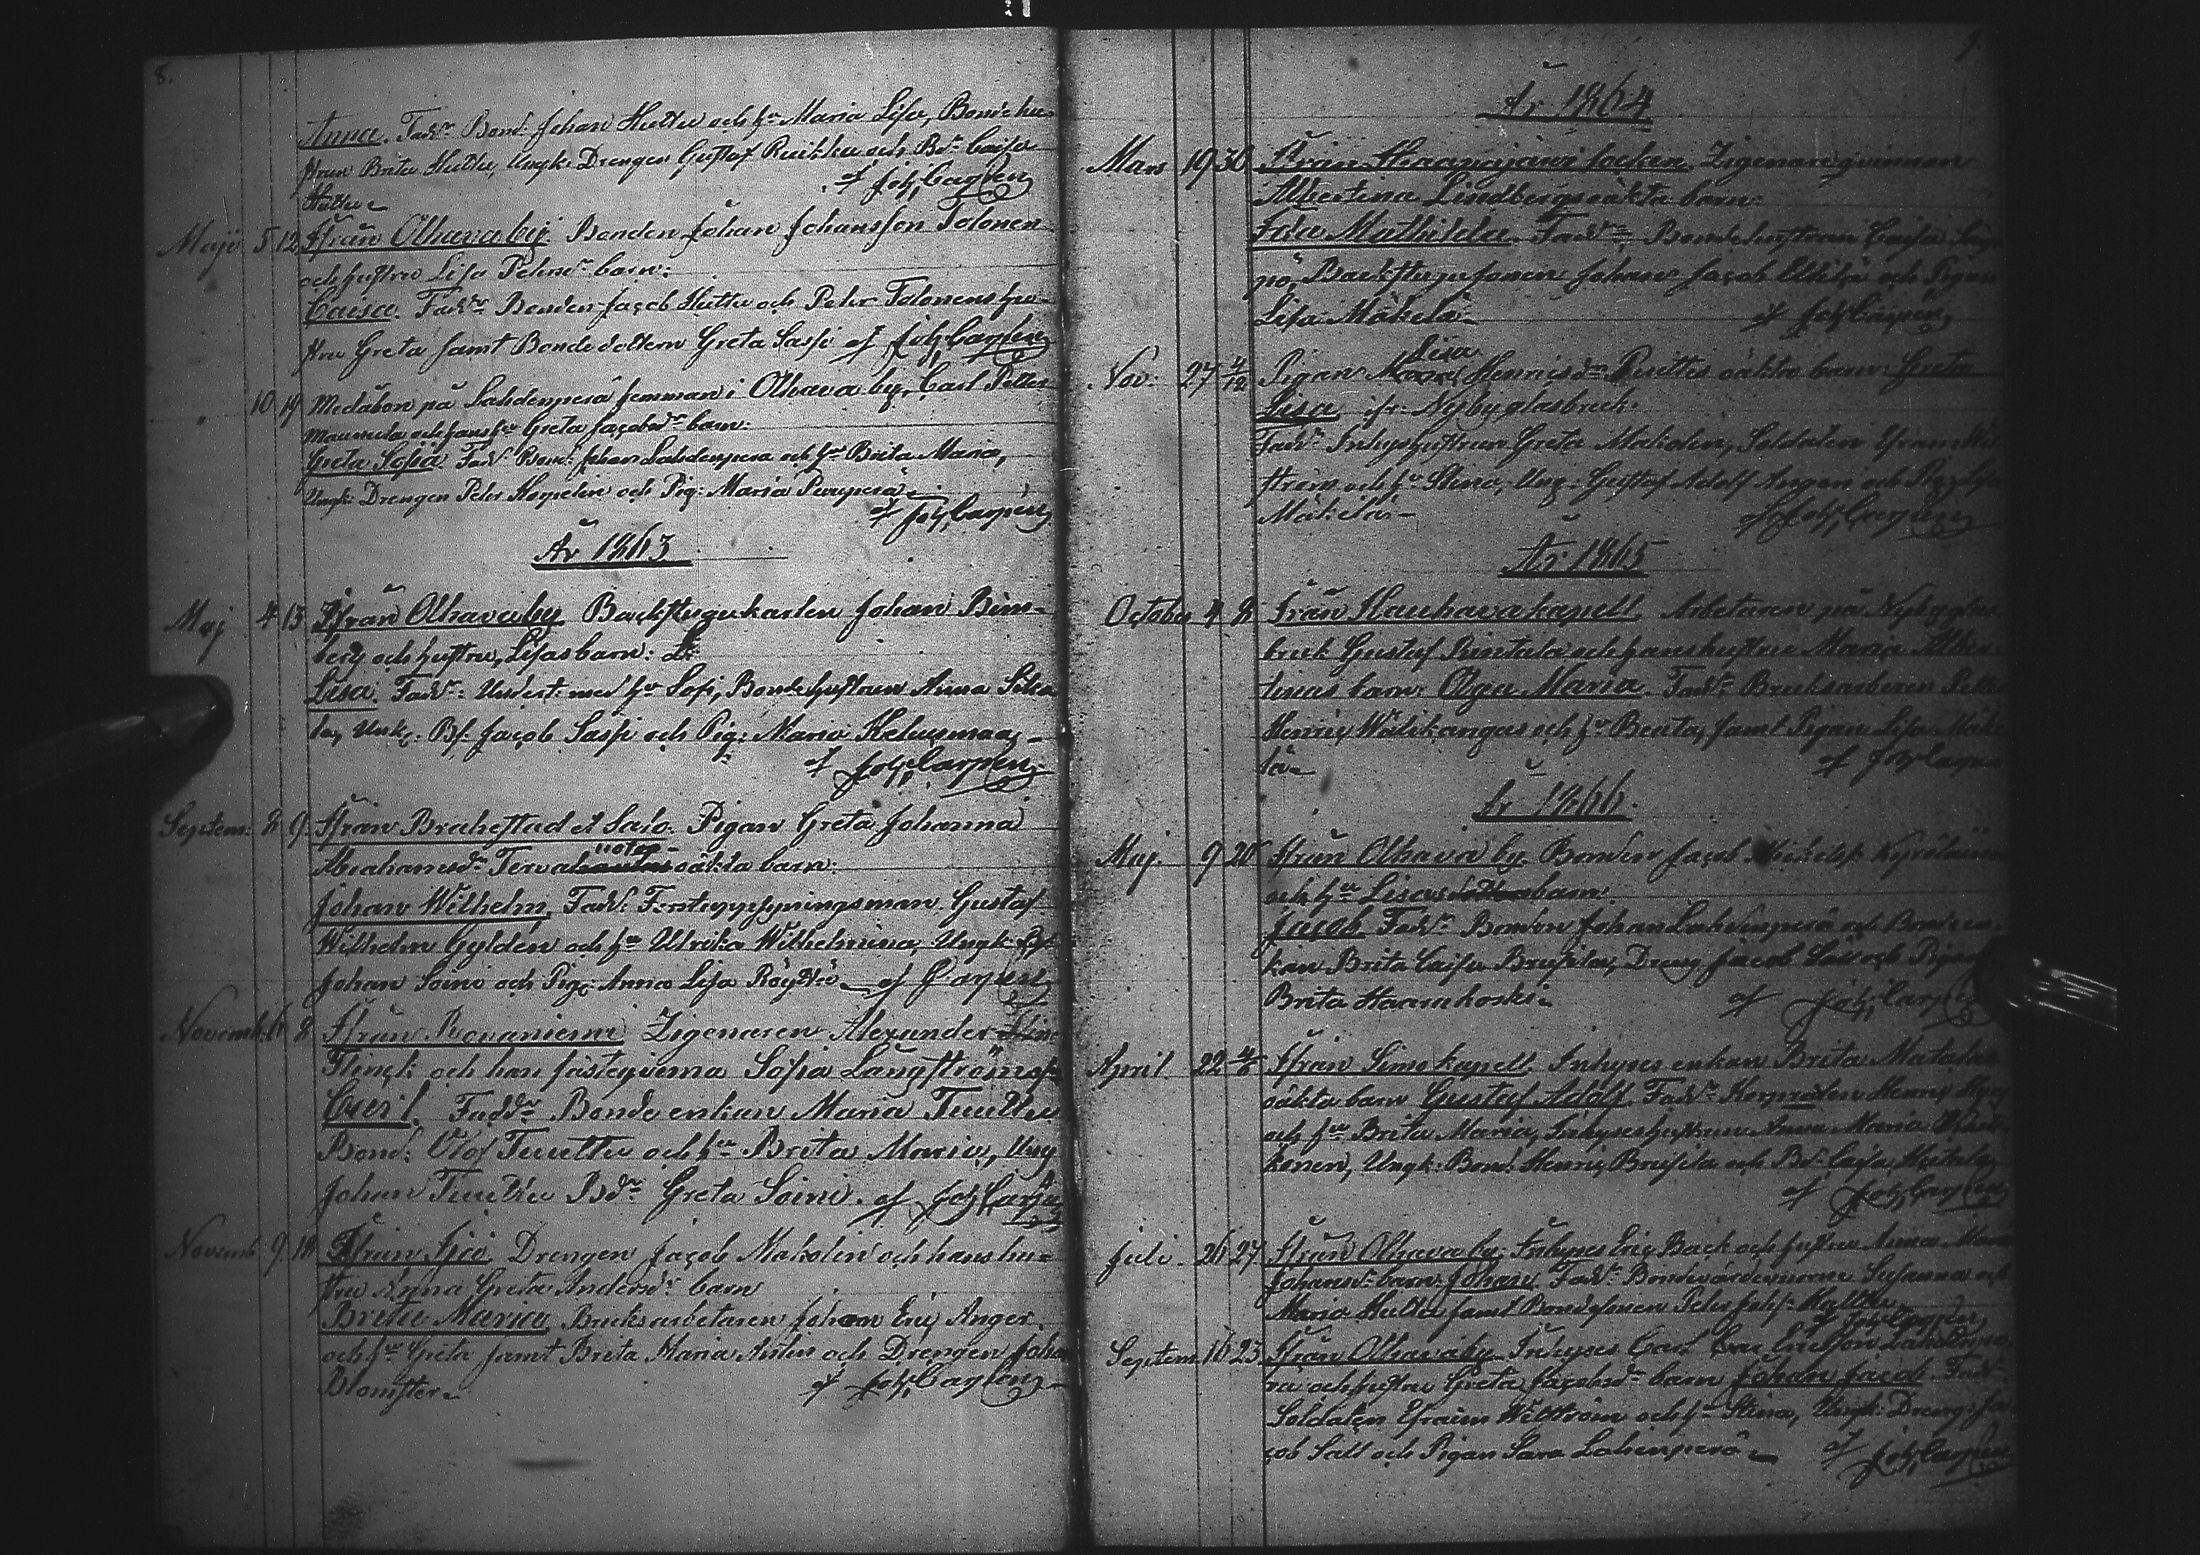 8.
Anna. Fadr. Bond. Johan Huttu och hu Maria Lisa, Bondehu-
strun Brita Huttu, Ungk. Drengen Gustaf Ruikka och Bdr Caisa
Huttu. af Joh. Carpen
Maji 5 12 Ifrån Olhava by. Bonden Johan Johansson Tolonen
och hustru Lisa Pehrsdr barn:
Caisa. Fadr Bonden Jacob Huttu och Pehr Tolonens hu-
stru Greta samt Bondedottern Greta Sassi af Joh. Carpen
" 10 19 Medåbon på Lahdenperä hemman i Olhava by, Carl Petter
och hans hu Greta Jacobsdr barn:
Greta Sofia. Fadr Bond. Johan Lahdenperä och hu Brita Maria,
Ungk: Drengen Peter och Pig: Maria Puruperä
af Joh. Carpen
År 1863
Maj 4 13 Ifrån Olhava by Backstugukarlen Johan Bim-
berg och hustru, Lisas barn: L.
Lisa. Fadr: Undert. med hu Sofi, Bondehustrun Anna
la, Unk. Bs. Jacob Sassi och Pig: Maria
af Joh. Carpen
Septem: 2 9. Ifrån Brahestad el Salo. Pigan Greta Johanna
Abrahamsdr Terva oäkta barn:
Johan Wilhelm. Fadr. Gustaf
Wilhelm Gylden och hu Ulrika Wilhelmina, Ungk.
Johan Soini och Pig. Anna Lisa Röyttö. af Carpen
Novemb. 6 8 Ifrån Rovaniemi Zigenaren Alexander Flin
Flinck och han fästeqvinna Sofia Långströms
Carl. Faddr Bonde enkan Maria Tuuttu
Bond: Olof Tuuttu och hu Brita Maria, Ung
Johan Tuuttu Bdr Greta Soini. af Joh. Carpen
Novemb 9. 18 Ifrån Ijo Drengen Jacob Makolin och hans hu-
stru Anna Greta Andersdr barn
Brita Maria Bruksarbetaren Johan Eric Anger
och hu Greta samt Brita Maria och Drengen Johan
Blomster. af Joh. Carpen
9.
År 1864
Mars 19 30 Ifrån Haapajärvi socken. Zigenare qvinnan
Albertina Lindbergs oäkta barn:
Ida Mathilda. Fadr Bondehustrun Caisa
Backstugusonen Johan Jacob och Pigan
Lisa Mäkelä. af Joh. Carpen
Lisa
Nov: 27 4/12 Pigan Henricsdr oäkta barn: Greta
Lisa, ifr. Nyby glasbruk.
Fadr Inhyshustrun Greta Makolin, Soldaten Efraim Wil-
ström och hu Stina, Ung: Gustaf Adolf Anger och Pig: Lisa
Mäkelä. af Joh. Carpen
År 1865
October 4 8 Från Haukava kapell. Arbetaren på Nyby glas-
bruk Gustaf Rintala och hans hustru Maria Alber-
tinas barn: Olga Maria. Fadr Bruksarberen Petter
Henric Wälikangas och hu Beata, samt Pigan Lisa Mäke-
lä. af Joh. Carpen
År 1866.
Maj 9 20 Ifrån Olhava by. Bonden Jacob
och hu Lisas barn:
Jacob Fadr Bonden Johan Lahdenperä och Bondeen-
kan Brita Caisa Brusila, Dreng Jacob och Pigan
Brita Haarahoski. af Joh. Carpen
April 22 4/6 Ifrån Simo kapell. Inhyses enkan Brita
oäkta barn Gustaf Adolf. Fadr Henric
och hu Brita Maria, Inhyseshustrun Anna Maria
konen, Ungk: Bond. Henric Brusila och Bdr Caisa
af Joh. Carpen
Juli. 26 27 Ifrån Olhava by. Inhyses Eric Back och hustru Anna Maria
Johansdr barn: Johan. Fadr Susanna och
Maria Huttu samt Bondesonen Peter Johs. Huttu
af Joh. Carpen
Septem 16 23 Ifrån Olhava by. Inhyses Carl Ericsson Lahdenpe-
rä och hustru Greta Jacobsdr barn Johan Jacob. Fadr
Soldaten Efraim Wilström och hu Stina, Ungk: Dreng: Ja-
cob Sall och Pigan Sara Lahenperä. af Joh. Carpen